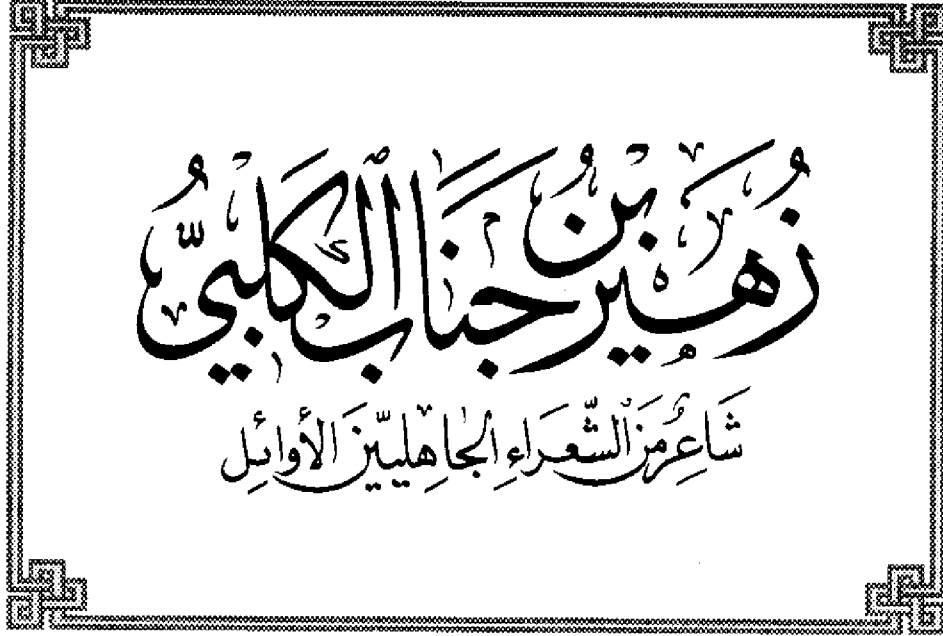 زُهَيْر بْنُ جَنَابٍ الكَلْبِيُّ
شَاعِرٌ مِنَ الشُّعَرَاءِ الجَاهِلِيِّينَ الأَوَائِلِ